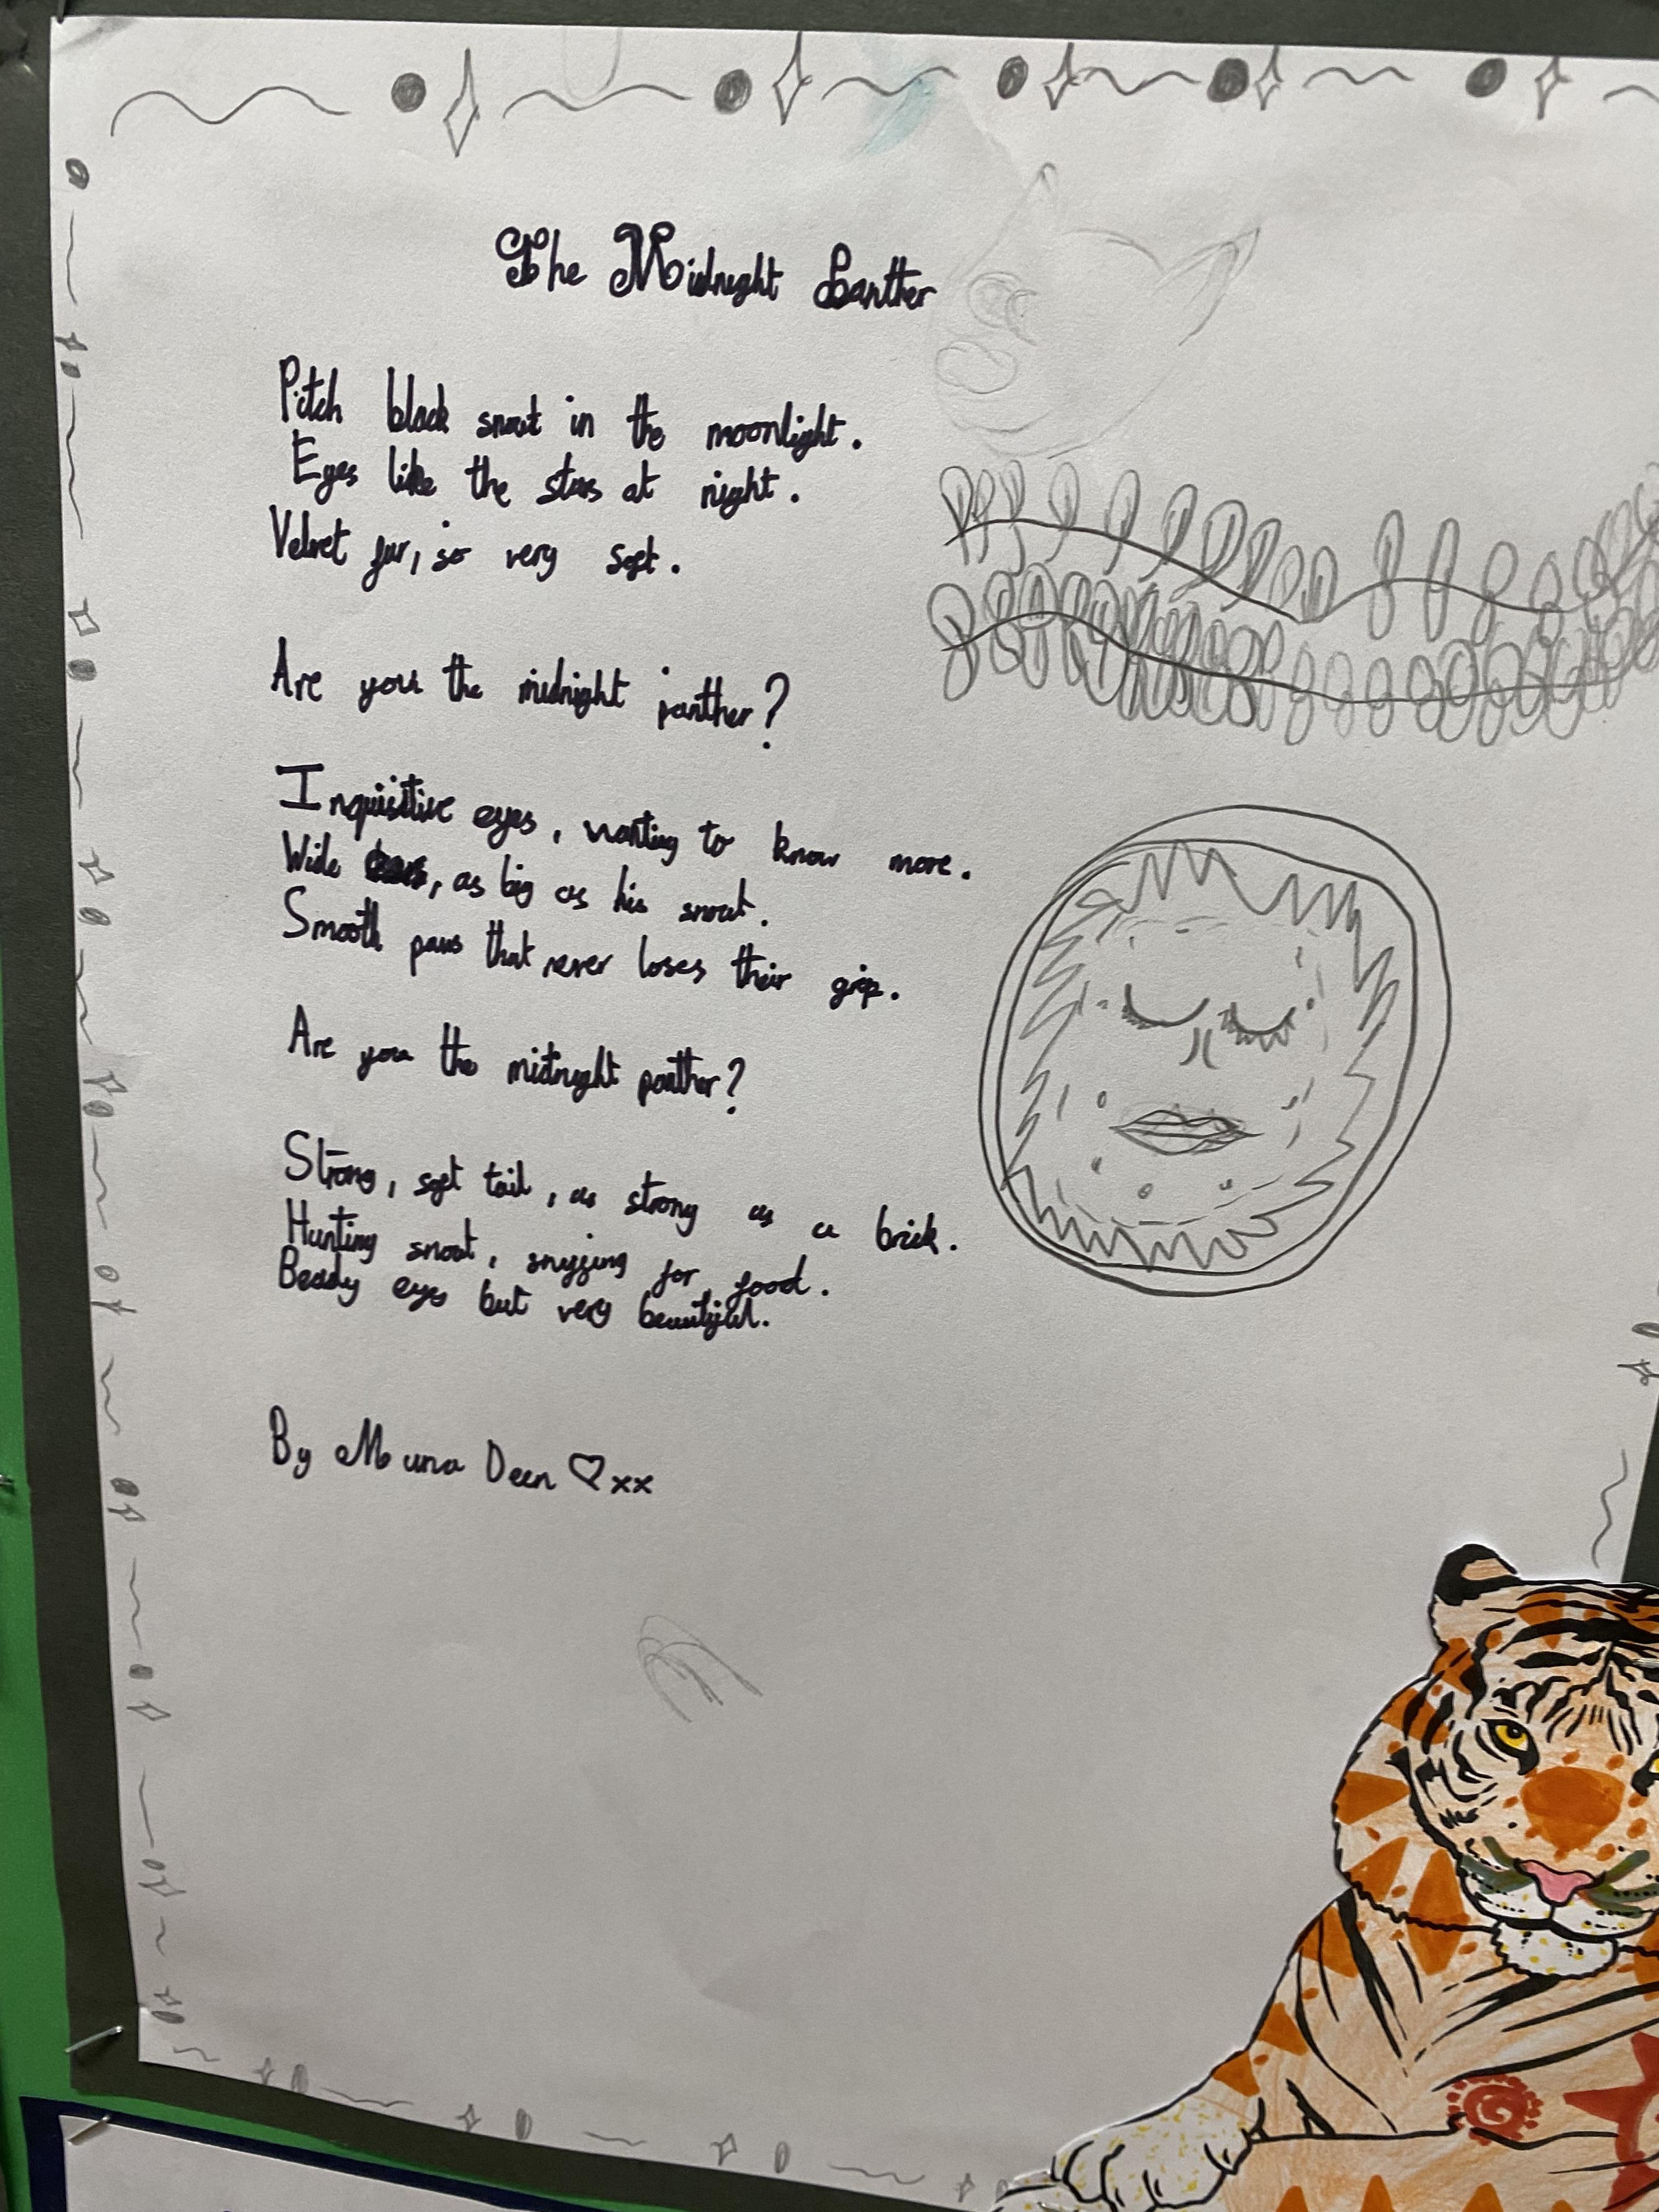 The Midnight Panther
Pitch black snout in the moonlight.
Eyes like the stars at night.
Velvet fur, so very soft.
Are you the midnight panther?
Inquisitive eyes, wanting to know more.
Wide , as big as his snout.
Smooth paws that never loses their grip.
Are you the midnight panther?
Strong, soft tail, as strong as a brick.
Hunting snout, sniffing for food.
Beady eyes but very beautiful.
By Muna Deen ♡xx